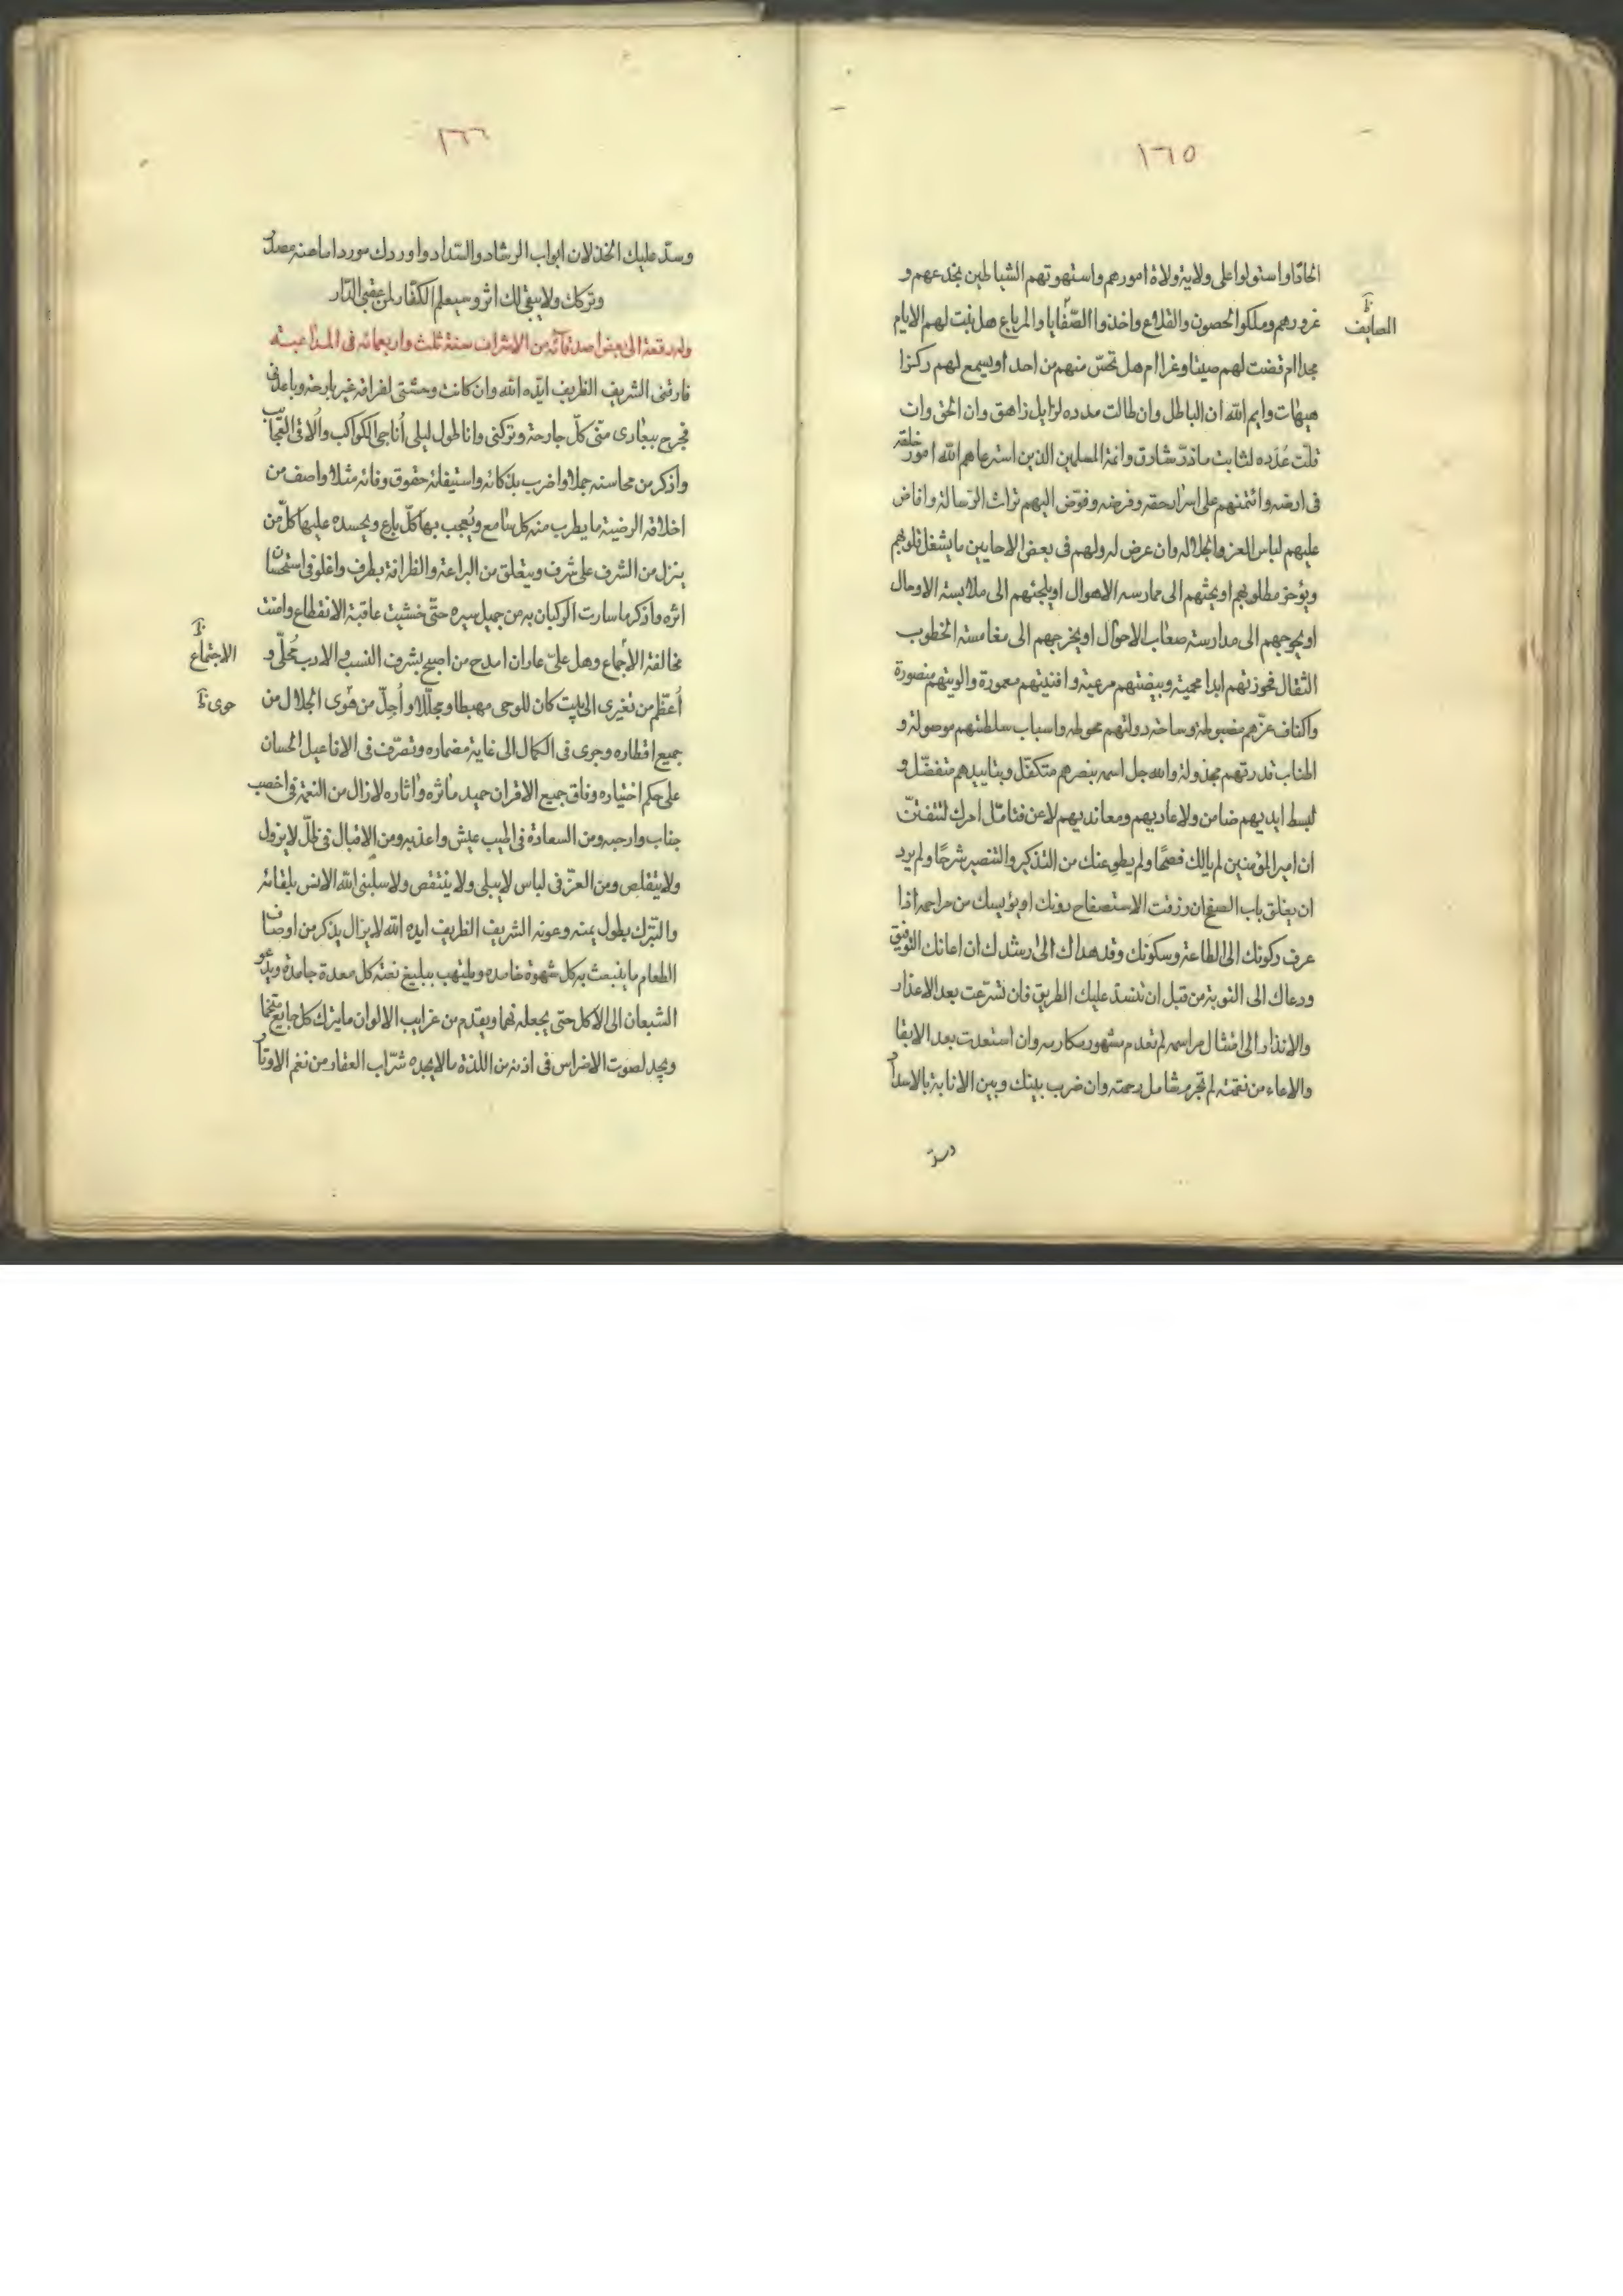 ١٦٥
الحادًا واستولوا على ولاية ولاة امورهم واستهوتهم الشياطين بخدعهم و
غرورهم وملكوا الحصون والقلاع واخذوا الصَّفايا والمرباع هل بقيت لهم الايام
الصايف
مجدا ام قضت لهم صيتا وعزا ام هل تحسّ منهم من احد او يسمع لهم ركزا
هيهات وايم الله ان الباطل وان طالت مدده لزايل زاهق وان الحق وان
قلّت عُدَده لثابت ماذرّ شارق وائمة المسلمين الذين استرعاهم الله امور خلقه
فى ارضه وائتمنهم على اسرار حقه وفرضه وفوّض اليهم تراث الرّسالة وافاض
عليهم لباس العز والجلالة وان عرض لدولهم فى بعض الاحايين ما يشغل قلوبهم
ويؤخر مطلوبهم او يحثهم الى ممارسة الاهوال او يلجئهم الى ملابسة الاوحال
او يحوجهم الى مدارسة صعاب الاحوال او يخرجهم الى مغامسة الخطوب
الثقال فحوزتهم ابدا محمية وبيضتهم مرعية وافنيتهم معمورة والويتهم منصورة
واكناف عزّهم مضبوطة وساحة دولتهم محوطة واسباب سلطتهم موصولة و
اطناب قدرتهم مجذولة والله جل اسمه بنصرهم متكفّل وبتاييدهم متفضّل و
لبسط ايديهم ضامن ولاعاديهم ومعانديهم لاعن فتامّل امرك لتتفنّت
ان امير المؤمنين لم يالك فصحًا ولم يطو عنك من التذكير والتبصير شرحًا ولم يرد
ان يغلق باب الصفح ان رزقت الاستصفاح دونك او يؤيسك من مراحمه اذا
عرف ركونك الى الطاعة وسكونك وقد هداك الى رشدك ان اعانك التوفيق
ودعاك الى التوبة من قبل ان تنسدّ عليك الطريق فان تسرّعت بعد الاعذار
والانذار الى امتثال مراسمه لم تعدم مشهور مكارمه وان استعدت بعد الابقا
والاعاء من نقمته لم تحرم شامل رحمته وان ضرب بينك وبين الانابة بالاسداد
وسدّ
١٦٦
وسدّ عليك الخذلان ابواب الرشاد والسّداد واوردك موردا ما عنه مصدر
وتركك ولا يبقى لك اثر وسيعلم الكفّار لمن عقبى الدّار
وله رقعة الى بعض اصدقائه من الاشراف سنة ثلث واربعمائه فى المداعبة
فارقنى الشريف الظريف ايّده الله وان كانت وحشتى لفراقه غير بارحة وباعدنى
فجرح ببعادى منّى كلّ جارحة وتركنى وانا طول ليلى أُناجى الكواكب وأُلاقى العجايب
واذكر من محاسنه جملا واضرب بذكائه واستيفائه حقوق وفائه مثلا واصف من
اخلاقه الرضية ما يطرب منه كل سامع ويُعجب بها كلّ بارع ويحسده عليها كلّ من
ينزل من الشرف على شرف ويتعلق من البراعة والظرافة بطرف واغلو فى استحسان
اثره واذكر ما سارت الركبان به من جميل سيره حتّى خشيت عاقبة الانقطاع وامنت
مخالفة الأجماع وهل علىّ عار ان امدح من اصبح بشرف النسب والادب مُحلّى و
الاجتماع
أُعظّم من تغيرى الى بيت كان للوحى مهبطا ومجلّلا و أُجلّ من هَوى الجلال من
حوى
جميع اقطاره وجرى فى الكمال الى غاية مضماره وتصرّف فى الافاعيل الحسان
على حكم اختياره وفاق جميع الاقران حميد مآثره واثاره لازال من النعمة فى اخصب
جناب وارحبه ومن السعادة فى اطيب عيش واعذبه ومن الاقبال فى ظلّ لا يزول
ولا يتقلص ومن العزّ فى لباس لا يبلى ولا ينتقص ولا سلبنى الله الانس بلقائه
والتبرك بطول يمنه وعونه الشريف الظريف ايده الله لا يزال يذكر من اوصاف
الطعام ما ينبعث به كل شهوة خامدة ويلتهب ببليغ نعته كل معدة جامدة ويدعو
الشبعان الى الاكل حتى يجعله نهما ويقدم من غرايب الالوان ما يترك كل جايع متخما
ويجد لصوت الاضراس فى اذنه من اللذة ما لا يجده شرّاب العقار من نغم الاوتار